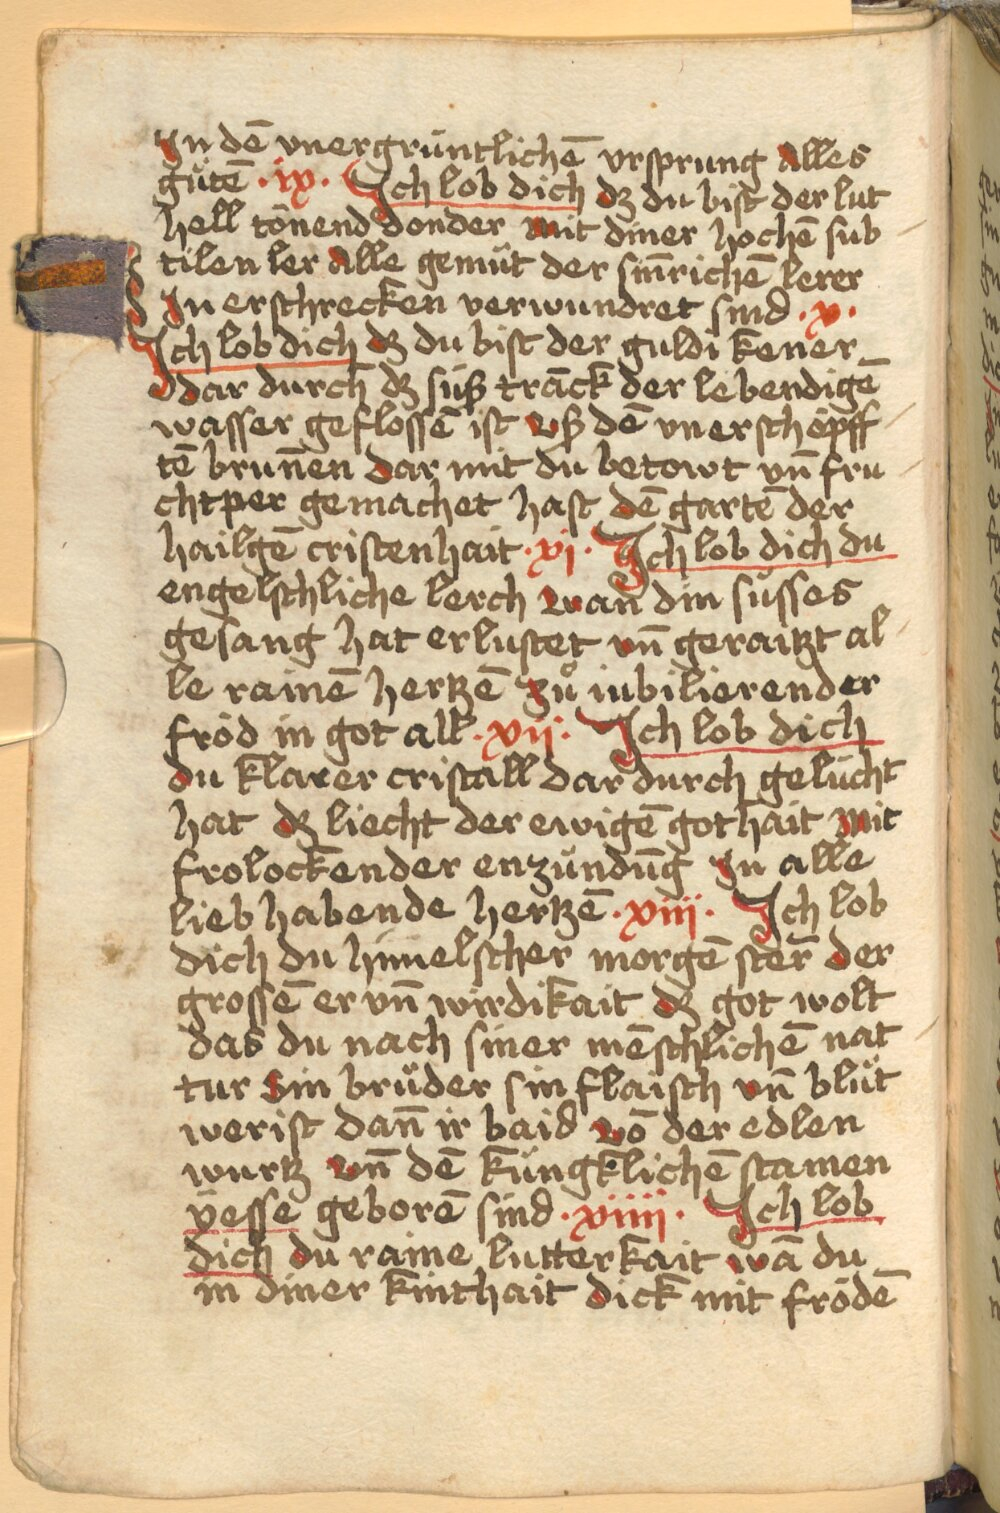 In dē vnergrüntlichē vrsprung Alles
gůtē · ix · Ich lob dich dz du bist der lut
hell tönend donder mit diner hochē sub
tilen ler Alle gemüt der sin̄richē lerer
In erschrecken verwundret sind · x ·
Ich lob dich dz du bist der guldi kener
dar durch dz süß trāck der lebendigē
wasser geflossē ist vß dē vnerschöpff
tē brun̄en dar mit du betowt vn̄ fru
chtper gemachet hast dē gartē der
hailgē cristenhait · xi · Ich lob dich du
engelschliche lerch wan̄ din süsses
gesang hat erlustet vn̄ geraitzt al
le rainē hertzē zů iubilierender
fröd in got all · xii · Ich lob dich
du klarer cristall dar durch gelücht
hat dz liecht der ewigē gothait mit
frolockender enzündūg In alle
lieb habende hertzē · xiii · Ich lob
dich du himelscher morgē ster̄ der
grossē er vn̄ wirdikait dz got wolt
das du nach siner mēschlichē nat
tur Sin brůder sin flaisch vn̄ blůt
werist dan̄ ir baid vō der edlen
wurtz vn̄ dē küngklichē stamen
yesse geborē sind · xiiii · Ich lob
dich du raine lutterkait wā du
in diner kinthait dick mit frödē